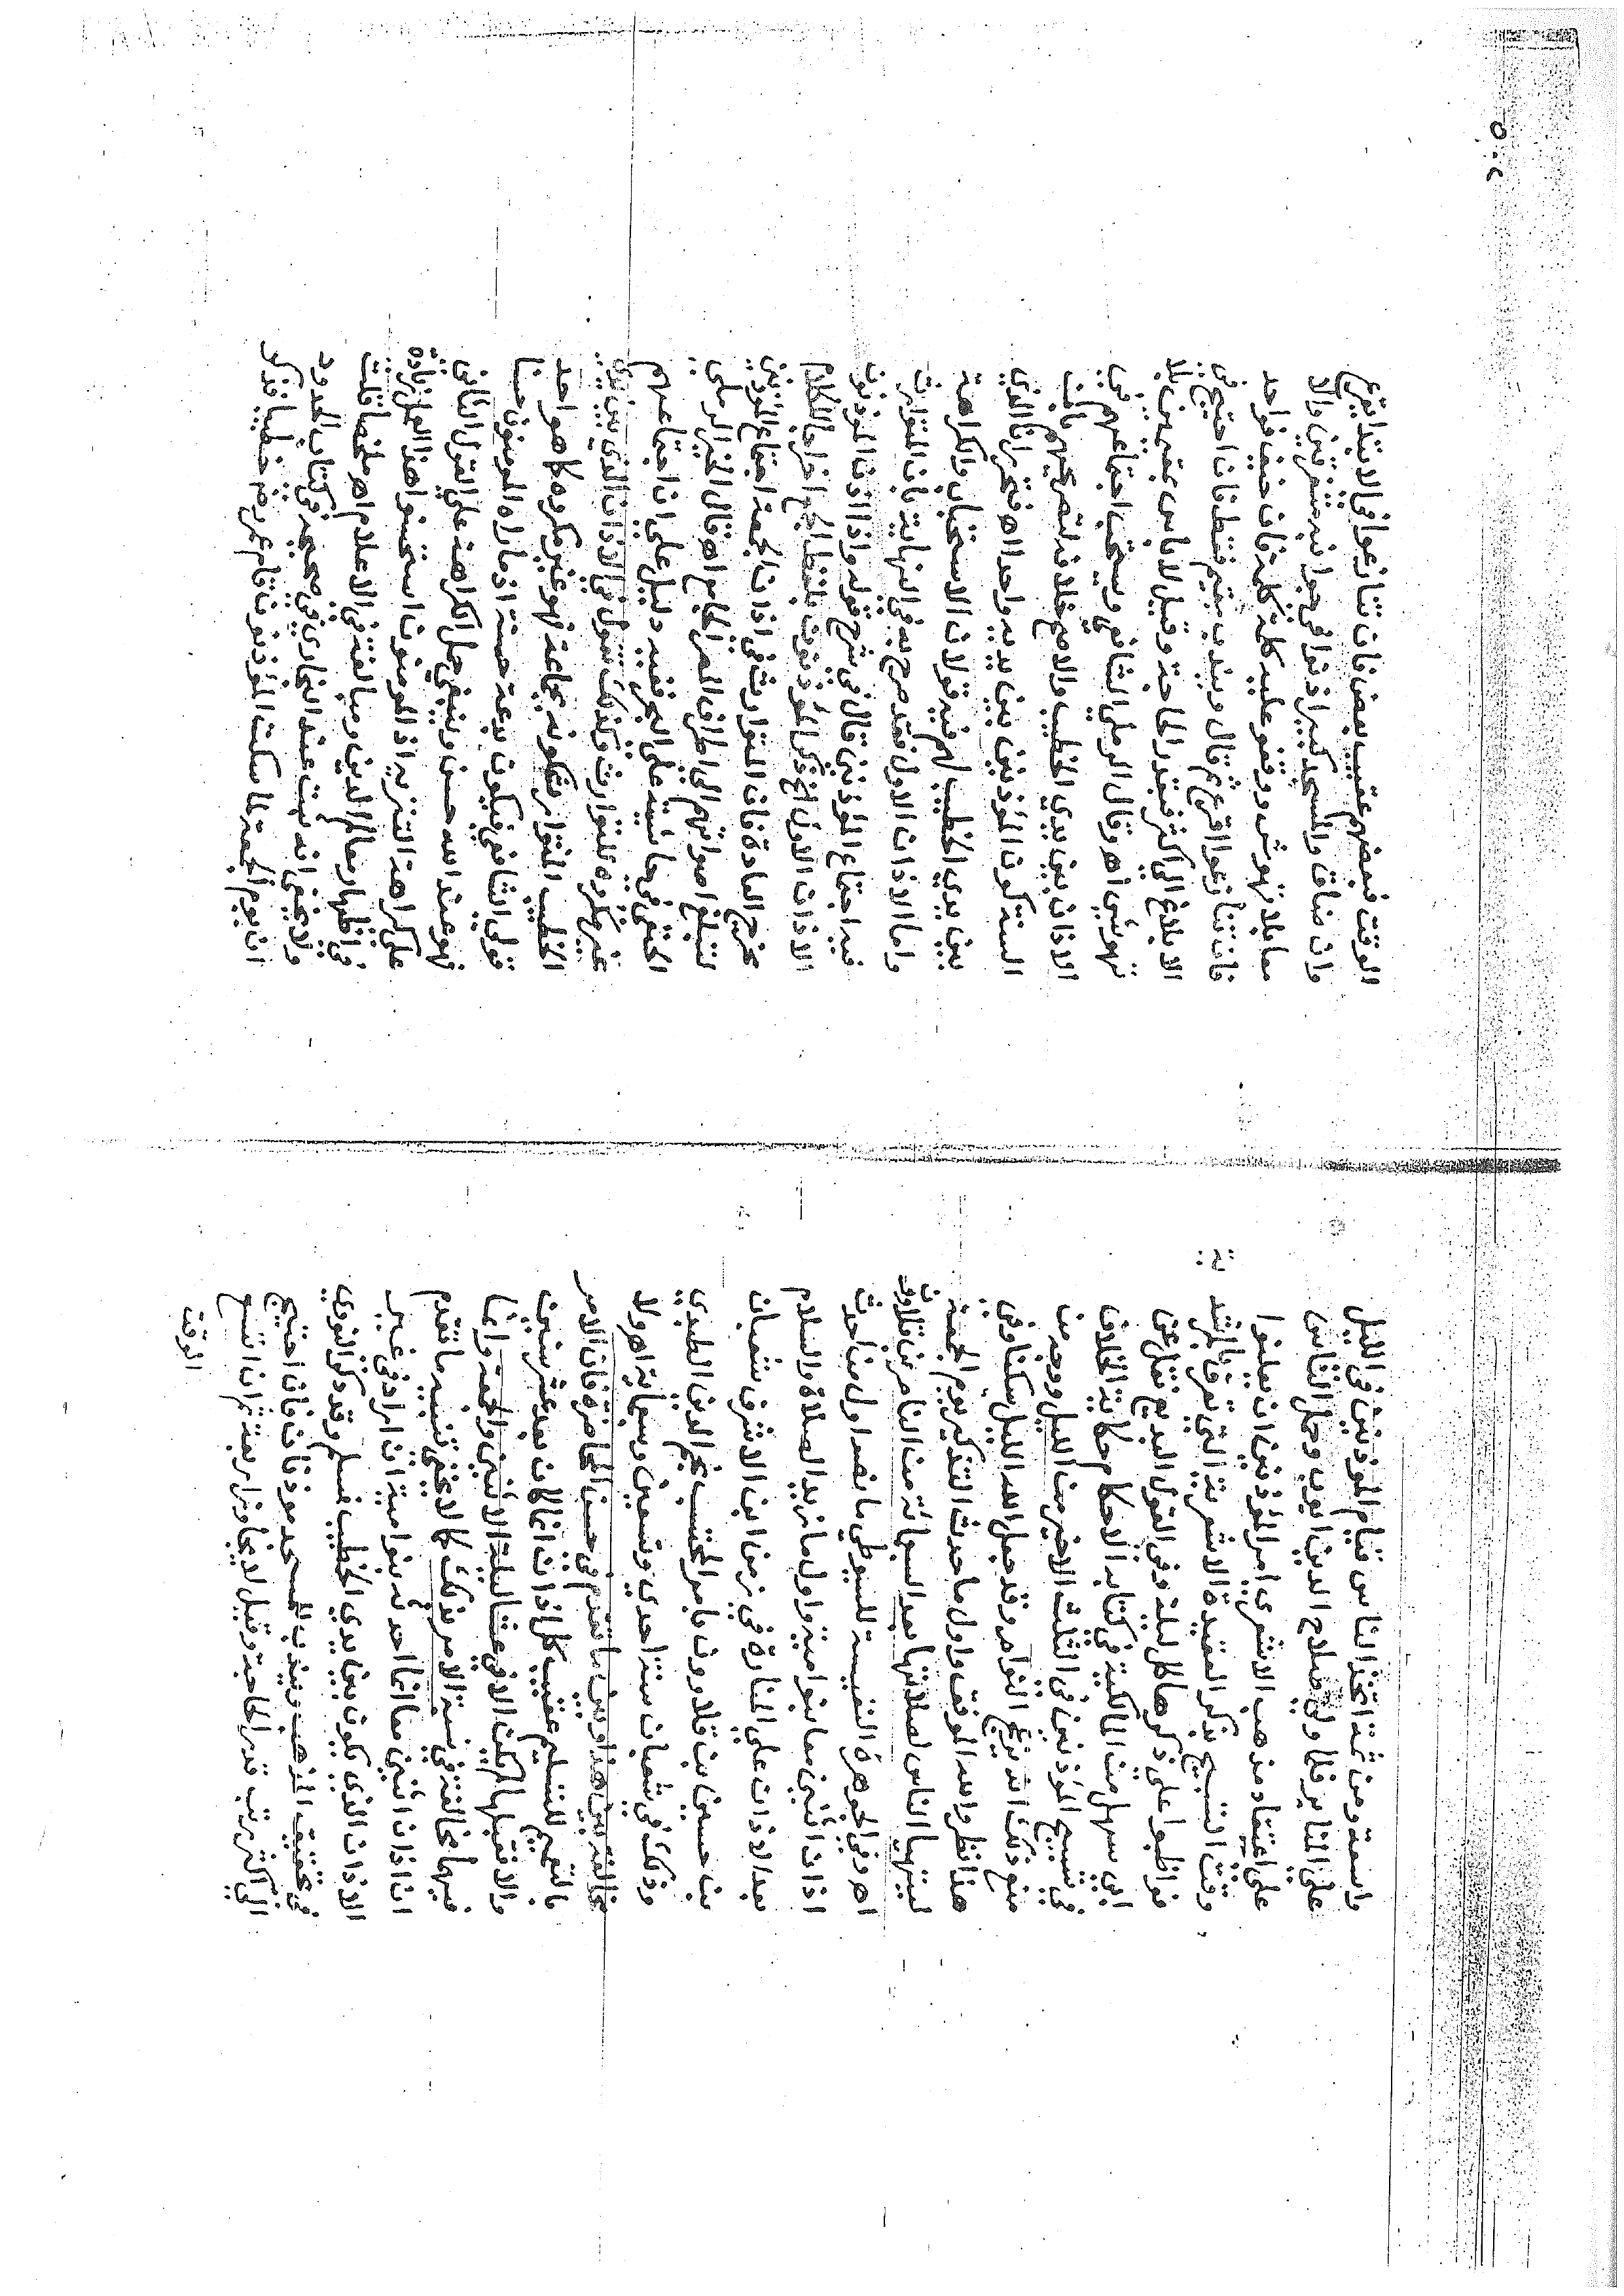 واسعة ومن ثمة اتخذ الناس قيام المؤذنين في الليل
على المنابر فلما ولي صلاح الدين ايوب وحمل الناس
على اعتقاد مذهب الاشعري امر المؤذنين ان يعلنوا
وقت التسبيح بذكر العقيدة الاشعرية التي تعرف بالمرشدة
فواظبوا على ذكرها كل ليلة وفي القول البديع نقل عن
ابن سهل من المالكية في كتابه الاحكام حكاية الخلاف
في تسبيح المؤذنين في الثلث الاخير من الليل ووجه من
منع ذلك انه يزعج النوام وقد جعل الله الليل سكنا وفي
هذا نظر والله الموفق واول ما حدث التذكير يوم الجمعة
ليتهيا الناس لصلاتها بعد السبعمائة من الناصر بن قلاوون
اهـ وفي الجوهرة النفيسة للسيوطي ما نصه اول من احدث
اذان اثنين معا بنو امية واول ما زيد الصلاة والسلام
بعد الاذان على المنارة في زمن ابن الاشرف شعبان
بن حسين بن قلاوون بامر المحتسب نجم الدين الطنبدي
وذلك في شعبان سنة احدي وتسعين وسبعماية اهـ ولا
مخالفة بين هذا وبين ما تقدم في حسن المحاضرة فان الامر
بالتعميم للتسليم عقيب كل اذان انما كان بعد عشر سنين
والا فقبلها لم يكن الا في عشا ليلة الاثنين والجمعة واما
فيهما مخالفة في نسبة الامر بذلك كما لا يخفى تنبيه ما تقدم
ان اذان اثنين معا انما احدثه بنو امية ان اراد في غير
الاذان الذي يكون بين يدي الخطيب فمسلم وقد ذكر النووي
في تحقيق المذهب ويندب للمسجد مؤذنان فان احتيج
الى اكثر رتب قدر الحاجة وقيل لا يجاوز اربعة ثم ان اتسع
الوقت
الوقت فبعضهم عقيب بعض فان تنازعوا في الابتدا يقرع
وان ضاق والمسجد كبير اذنوا في جوانبه متفرقين والا
معا بلا تهوش ووقفوا عليه كلمة كلمة فان خيف فواحد
فان تنازعوا اقرع ثم قال ويندب يقيم فقط فان احتيج في
الابلاغ الى اكثر فبقدر الحاجة وقيل لا باس بمقيمين بلا
تهوش اهـ وقال الرملي الشافعي ويستحب اجتماعهم في
الاذان بين يدي الخطيب والاصح خلافه لتصريحهم بان
السنة كون المؤذنين بين يديه واحد اهـ فتحرر ان الذي
بين يدي الخطيب لهم فيه قولان الاستحباب والكراهة
واما الاذان الاول فقد صرح به في النهاية بان المتوارث
فيه اجتماع المؤذنين قال في شرح قوله واذا اذن المؤذنون
الاذان الاول الخ ذكر المؤذنون بلفظ الجمع اخراجا للكلام
مخرج العادة فان المتوارث في اذان الجمعة اجتماع المؤذنين
لتبلغ اصواتهم الى اطراف المصر الجامع اهـ قال الخير الرملي
الحنفي في حاشيته على البحر ففيه دليل على ان اجتماعهم
غير مكروه للتوارث وكذلك نقول في الاذان الذي بين يدي
الخطيب المتوارث يكون به جماعة فهو غير مكروه كما هو احد
قولي الشافعي فيكون بدعة حسنة اذ ما راه المومنون حسنا
فهو عند الله حسن وينبغي حمل الكراهة على القول الثاني
على كراهة التنزيه اذ المومنون استحسنوا هذا الفعل زيادة
في اظهار معالم الدين ومبالغة في الاعلام اهـ ملخصا قلت
ولا يخفى انه ثبت عند البخاري في صحيحه في كتاب الحدود
ان يوم الجمعة لما سكت المؤذنون قام عمر رضي خطيبا فذكر